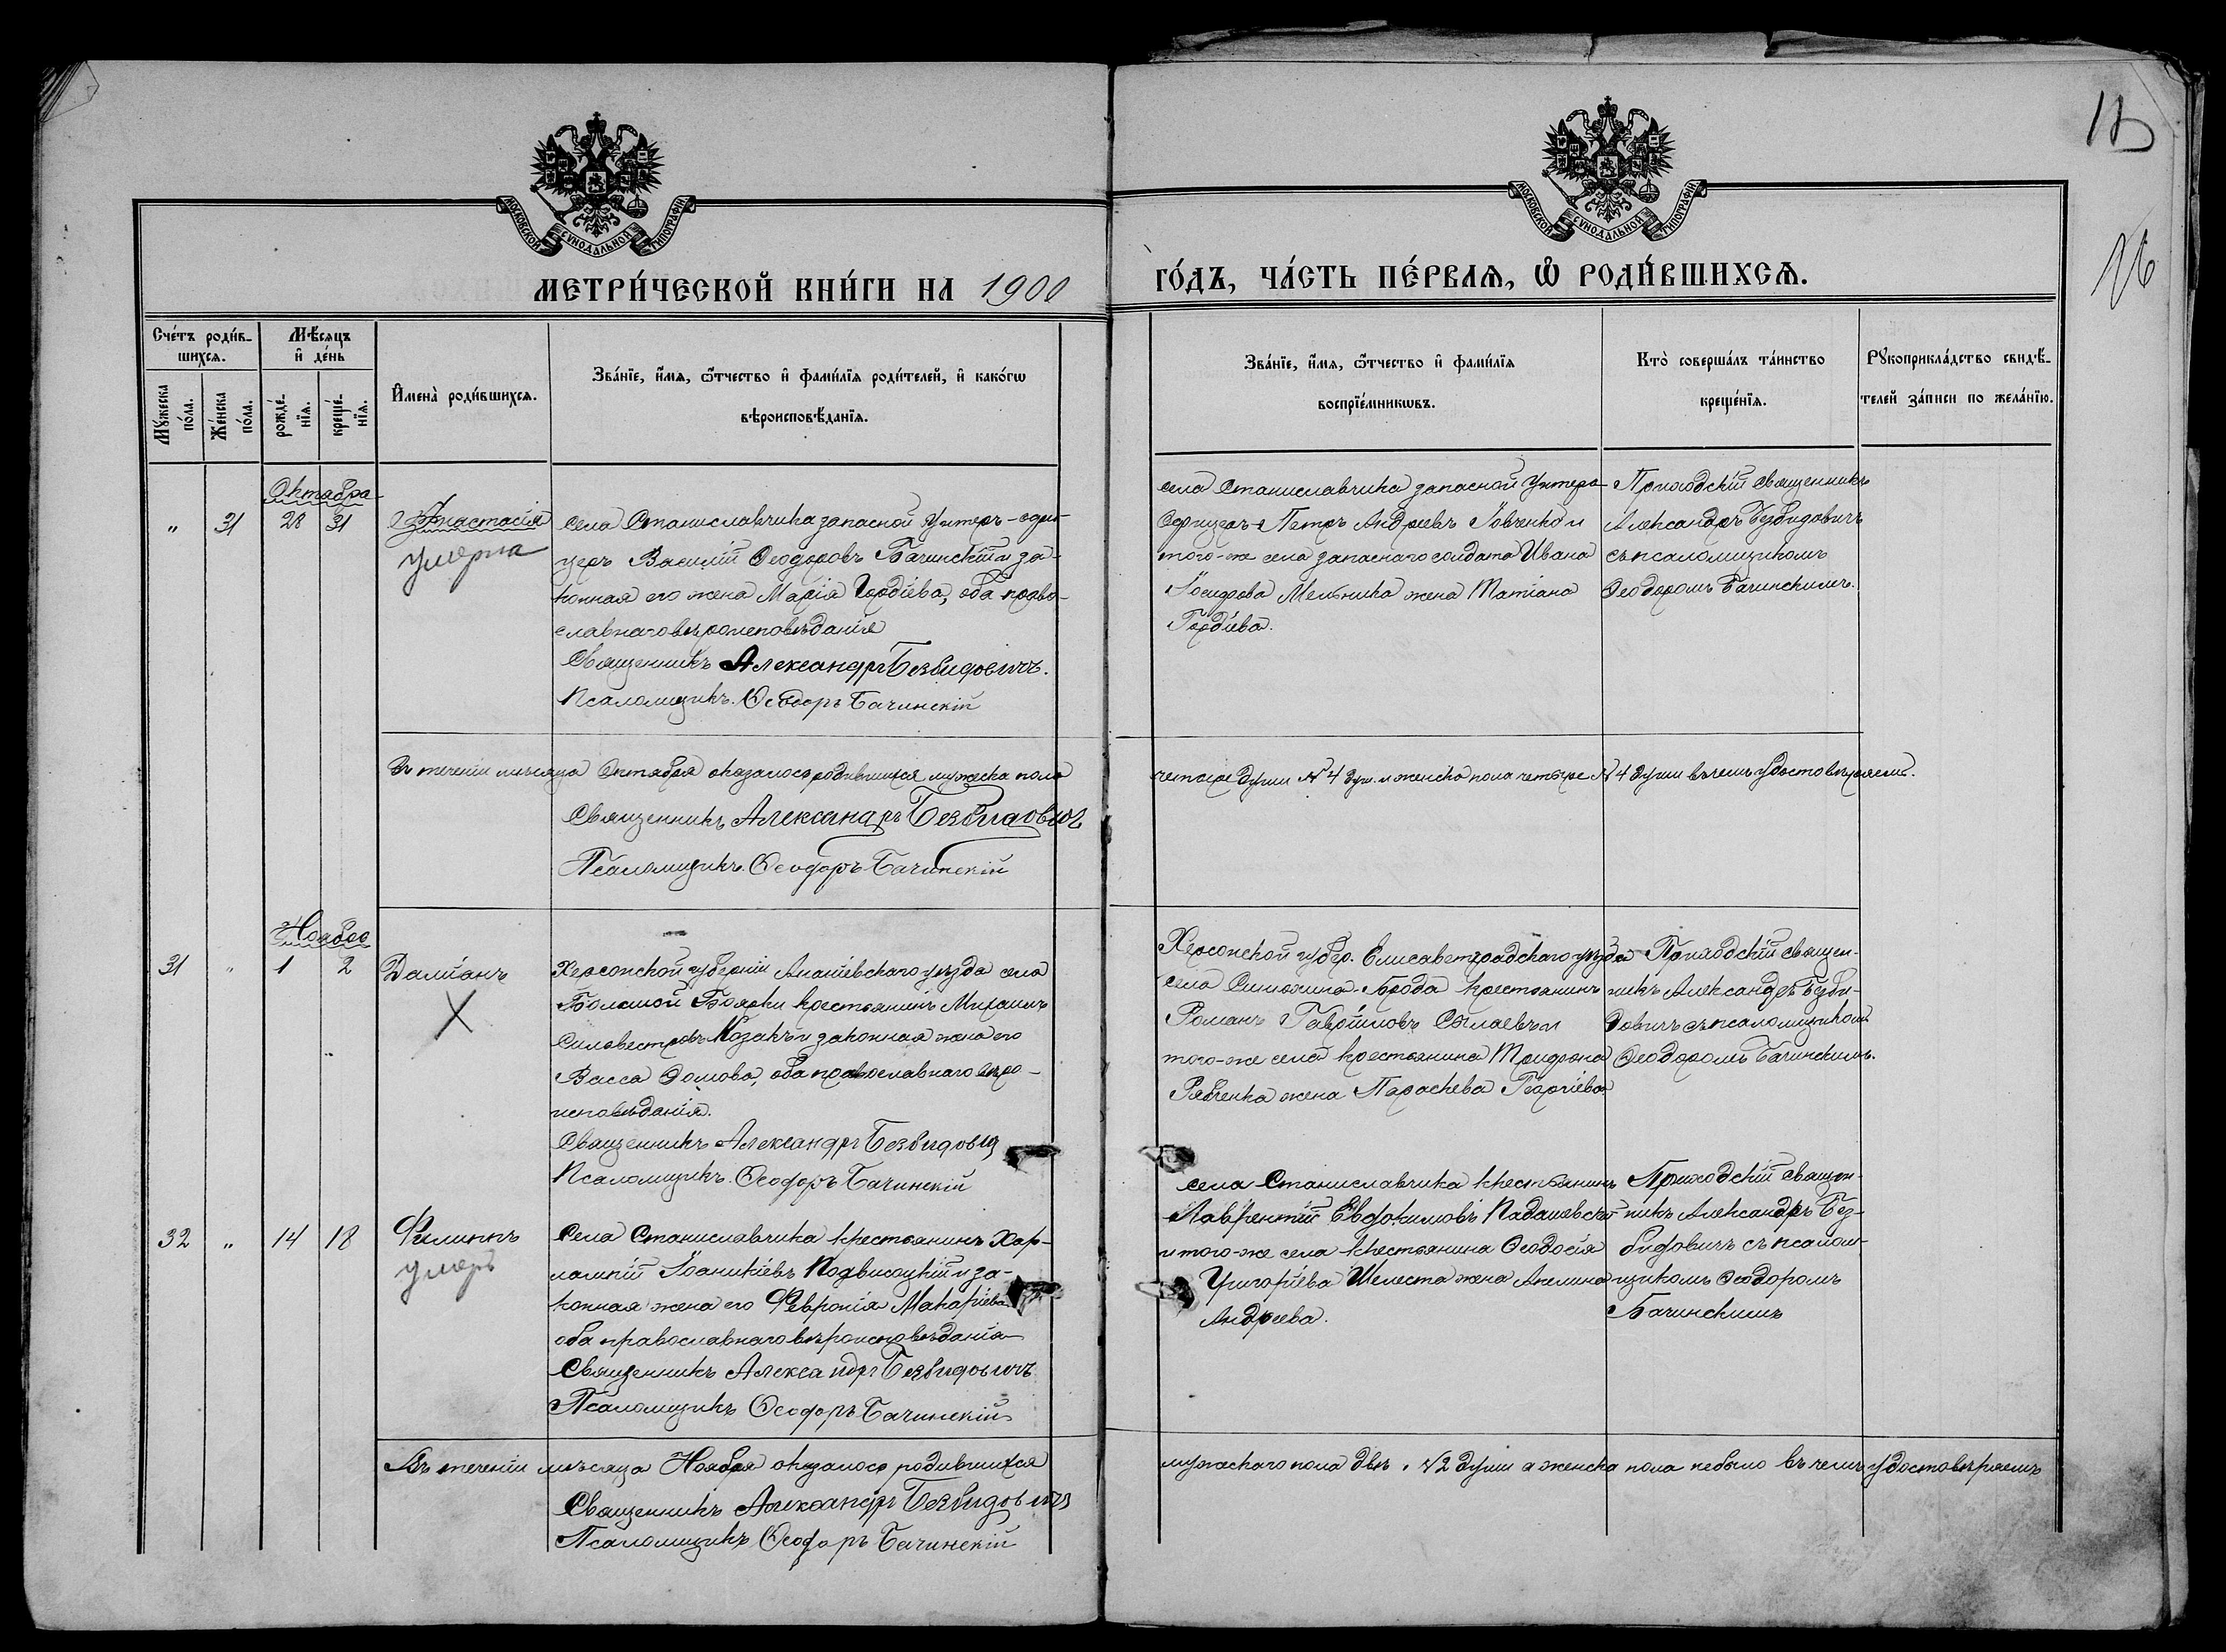 12
16
МОСКОВСКОЙ СѴНОДАЛЬНОЙ ТИПОГРАФІИ
МОСКОВСКОЙ СѴНОДАЛЬНОЙ ТИПОГРАФІИ
МЕТРИ́ЧЕСКОЙ КНИ́ГИ НА 1900 ГО́ДЪ, ЧА́СТЬ ПЕ́РВАѦ, Ѡ҆ РОДИ́ВШИХСѦ.
Сче́тъ роди́в-
шихсѧ.
Мꙋ́жеска
по́ла.
Же́нска
по́ла.
Мѣ́сѧцъ
и҆ де́нь
рожде́-
нїѧ.
креще́-
нїѧ.
И҆мена̀ роди́вшихсѧ.
Зва́нїе, и҆́мѧ, ѻ҆́тчество и҆ фами́лїѧ роди́телей, и҆ како́гѡ
вѣроисповѣ́данїѧ.
Зва́нїе, и҆́мѧ, ѻ҆́тчество и҆ фами́лїѧ
воспрїе́мникѡвъ.
Кто̀ соверша́лъ та́инство
креще́нїѧ.
Рꙋкоприкла́дство свидѣ́-
телей за́писи по жела́нїю.
Октября
" 31 28 31
Анастасія
умерла
Села Станиславчика запасной Унтеръ-офи-
церъ Василій Ѳеодоровъ Бачинскій и за-
конная его жена Марія Гордіева, оба право-
славнаго вѣроисповѣданія
Священникъ Александръ Безвидовичъ.
Псаломщикъ Ѳеодоръ Бачинскій
села Станиславчика запасной Унтеръ-
Офицеръ Петръ Андреевъ Іовченко и
того-же села запаснаго солдата Ивана
Іосифова Мельника жена Татіана
Гордіева.
Приходскій священникъ
Александръ Безвидовичъ
съ псаломщикомъ
Ѳеодоромъ Бачинскимъ.
Въ теченіи мѣсяца Октября оказалось родившихся мужеска пола четыре души № 4 душ. и женска пола четыре № 4 души въ чемъ удостовѣряемъ.
Священникъ Александръ Безвидовичъ
Псаломщикъ Ѳеодоръ Бачинскій
Ноября
31 " 1 2
Даміанъ
Х
Херсонской губерніи Ананіевскаго уѣзда села
Большой Боярки крестьянинъ Михаилъ
Силовестровъ Козакъ и законная жена его
Васса Ѳомова, оба православнаго вѣро-
исповѣданія.
Священникъ Александръ Безвидовичъ
Псаломщикъ Ѳеодоръ Бачинскій
Херсонской губер. Елисаветградскаго уѣзда
села Синюхина-Брода крестьянинъ
Романъ Гавріиловъ и
того-же села крестьянина Трифона
Рябченка жена Параскева Георгіева
Приходскій священ-
никъ Александръ Безви-
довичъ съ псаломщикомъ
Ѳеодоромъ Бачинскимъ.
32 " 14 18
Филиппъ
умеръ
Села Станиславчика крестьянинъ Хар-
лампій Іоанникіевъ Подвисоцкій и за-
конная жена его Февронія Макаріева
оба православнаго вѣроисповѣданія
Священникъ Александръ Безвидовичъ
Псаломщикъ Ѳеодоръ Бачинскій
села Станиславчика крестьянинъ
Лаврентій Евдокимовъ Падашевскій
и того-же села крестьянина Ѳеодосія
Григоріева Шелеста жена Акелина
Андреева.
Приходскій священ-
никъ Александръ Без-
видовичъ съ псалом-
щикомъ Ѳеодоромъ
Бачинскимъ
Въ теченіи мѣсяца Ноября оказалось родившихся мужескаго пола двѣ № 2 души а женска пола небыло въ чемъ удостовѣряемъ
Священникъ Александръ Безвидовичъ
Псаломщикъ Ѳеодоръ Бачинскій